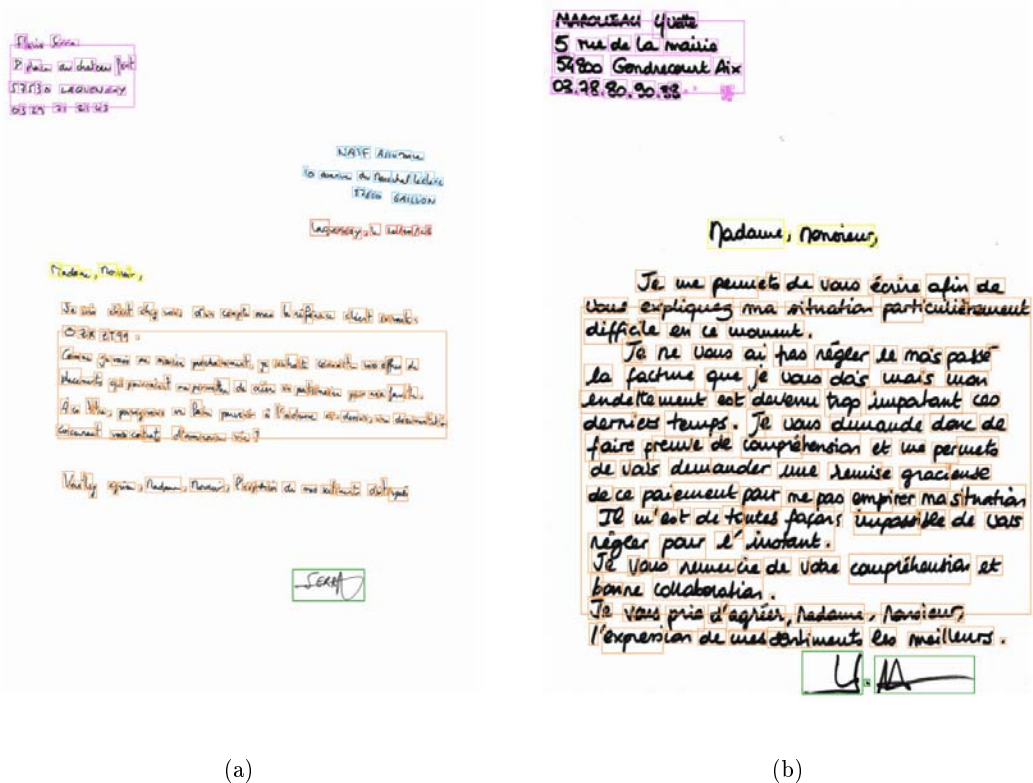 57530 LAQUENEXY
03 29 21 21 43
NAÏF Assurance
10 avenue du Maréchal Leclerc
27600 GAILLON
Laquenexy, le
Madame, Monsieur,
Je suis client chez vous d'un compte mas la référence client suivante:
Comme je vais me marier prochainement, je souhaite connaître vos offres de
placements qui pourraient me permettre de créer un patrimoine pour ma famille.
contrat d'assurance vie ?
Veuillez agréer, Madame, Monsieur, l'expression de mes sentiments distingués
SERRA
(a)
MAROLLEAU Yvette
5 rue de la mairie
54800 Gondrecourt Aix
03.78.80.90.88
Madame, Monsieur,
Je me permets de vous écrire afin de
vous expliquez ma situation particulièrement
difficile en ce moment.
Je ne vous ai pas régler le mois passé
la facture que je vous dois mais mon
endettement est devenu trop important ces
derniers temps. Je vous demande donc de
faire preuve de compréhension et me permets
de vous demander une remise gracieuse
de ce paiement pour ne pas empirer ma situation
Il m'est de toutes façons impossible de vous
régler pour l'instant.
Je vous remercie de votre compréhension et
bonne collaboration.
Je vous prie d'agréer, Madame, Monsieur,
l'expression de mes sentiments les meilleurs.
(b)